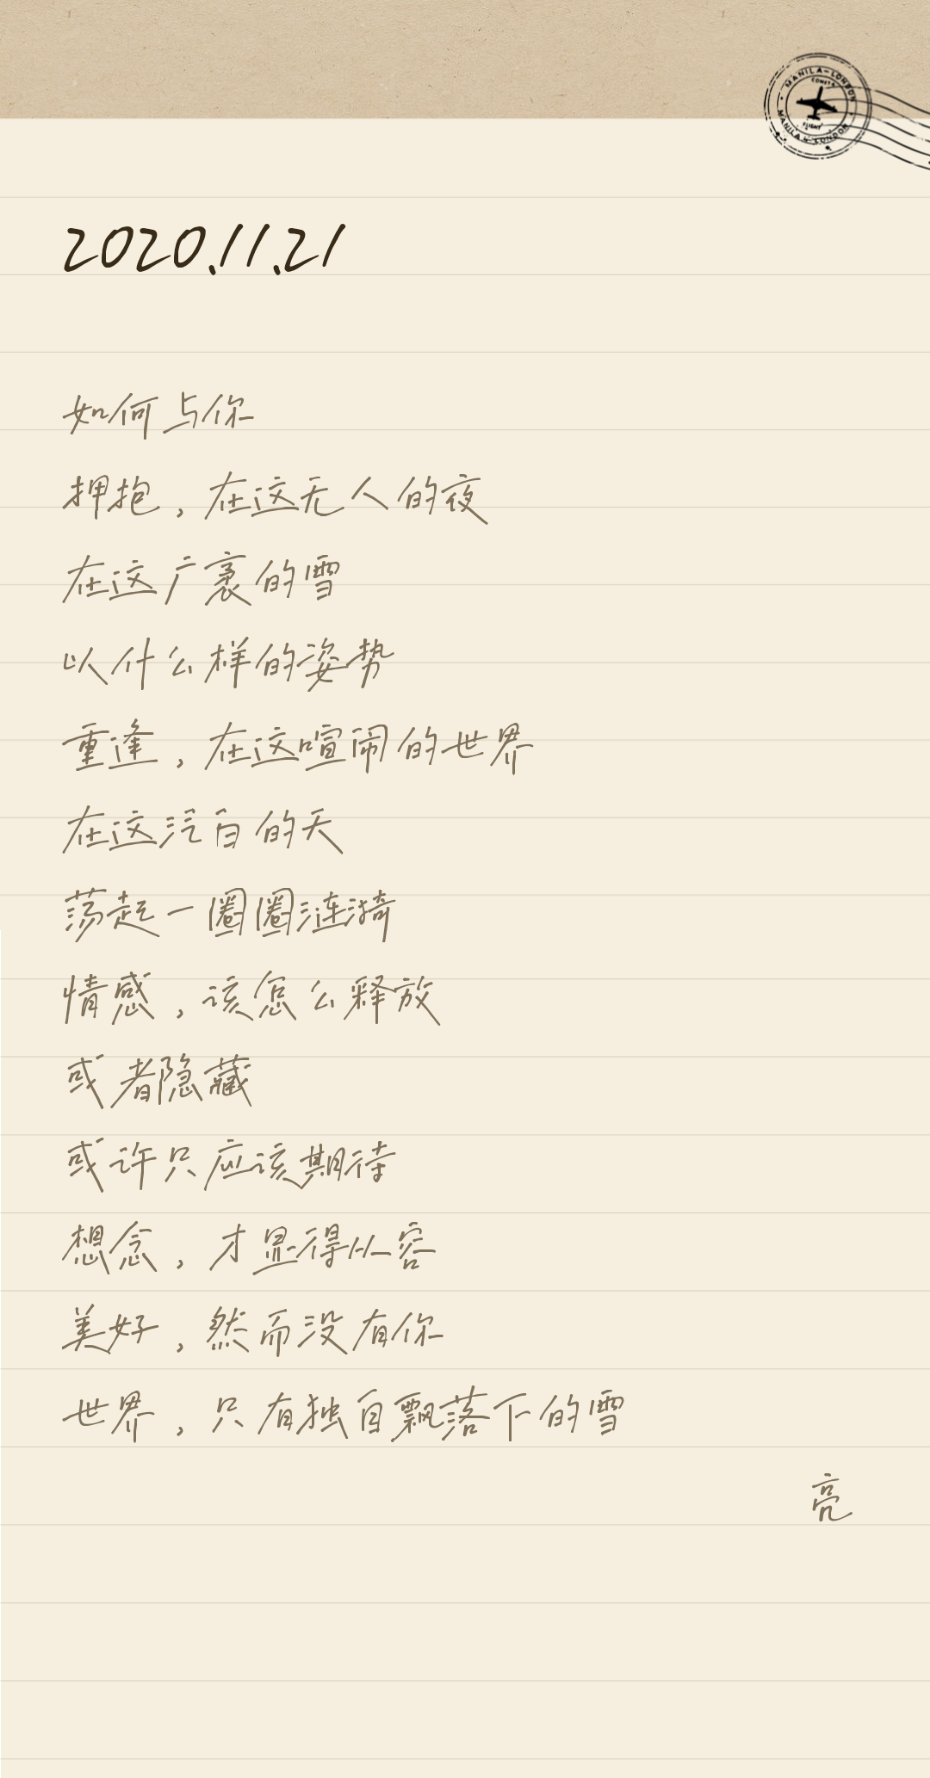 MANILA-LONDON
MANILA-LONDON
2020.11.21
如何与你
押抱，在这无人的夜
在这广袤的雪
以什么样的姿势
重逢，在这喧闹的世界
在这汽白的天
荡起一圈圈涟漪
情感，该怎么释放
或者隐藏
或许只应该期待
想念，才显得从容
美好，然而没有你
世界，只有独自飘落下的雪
亮